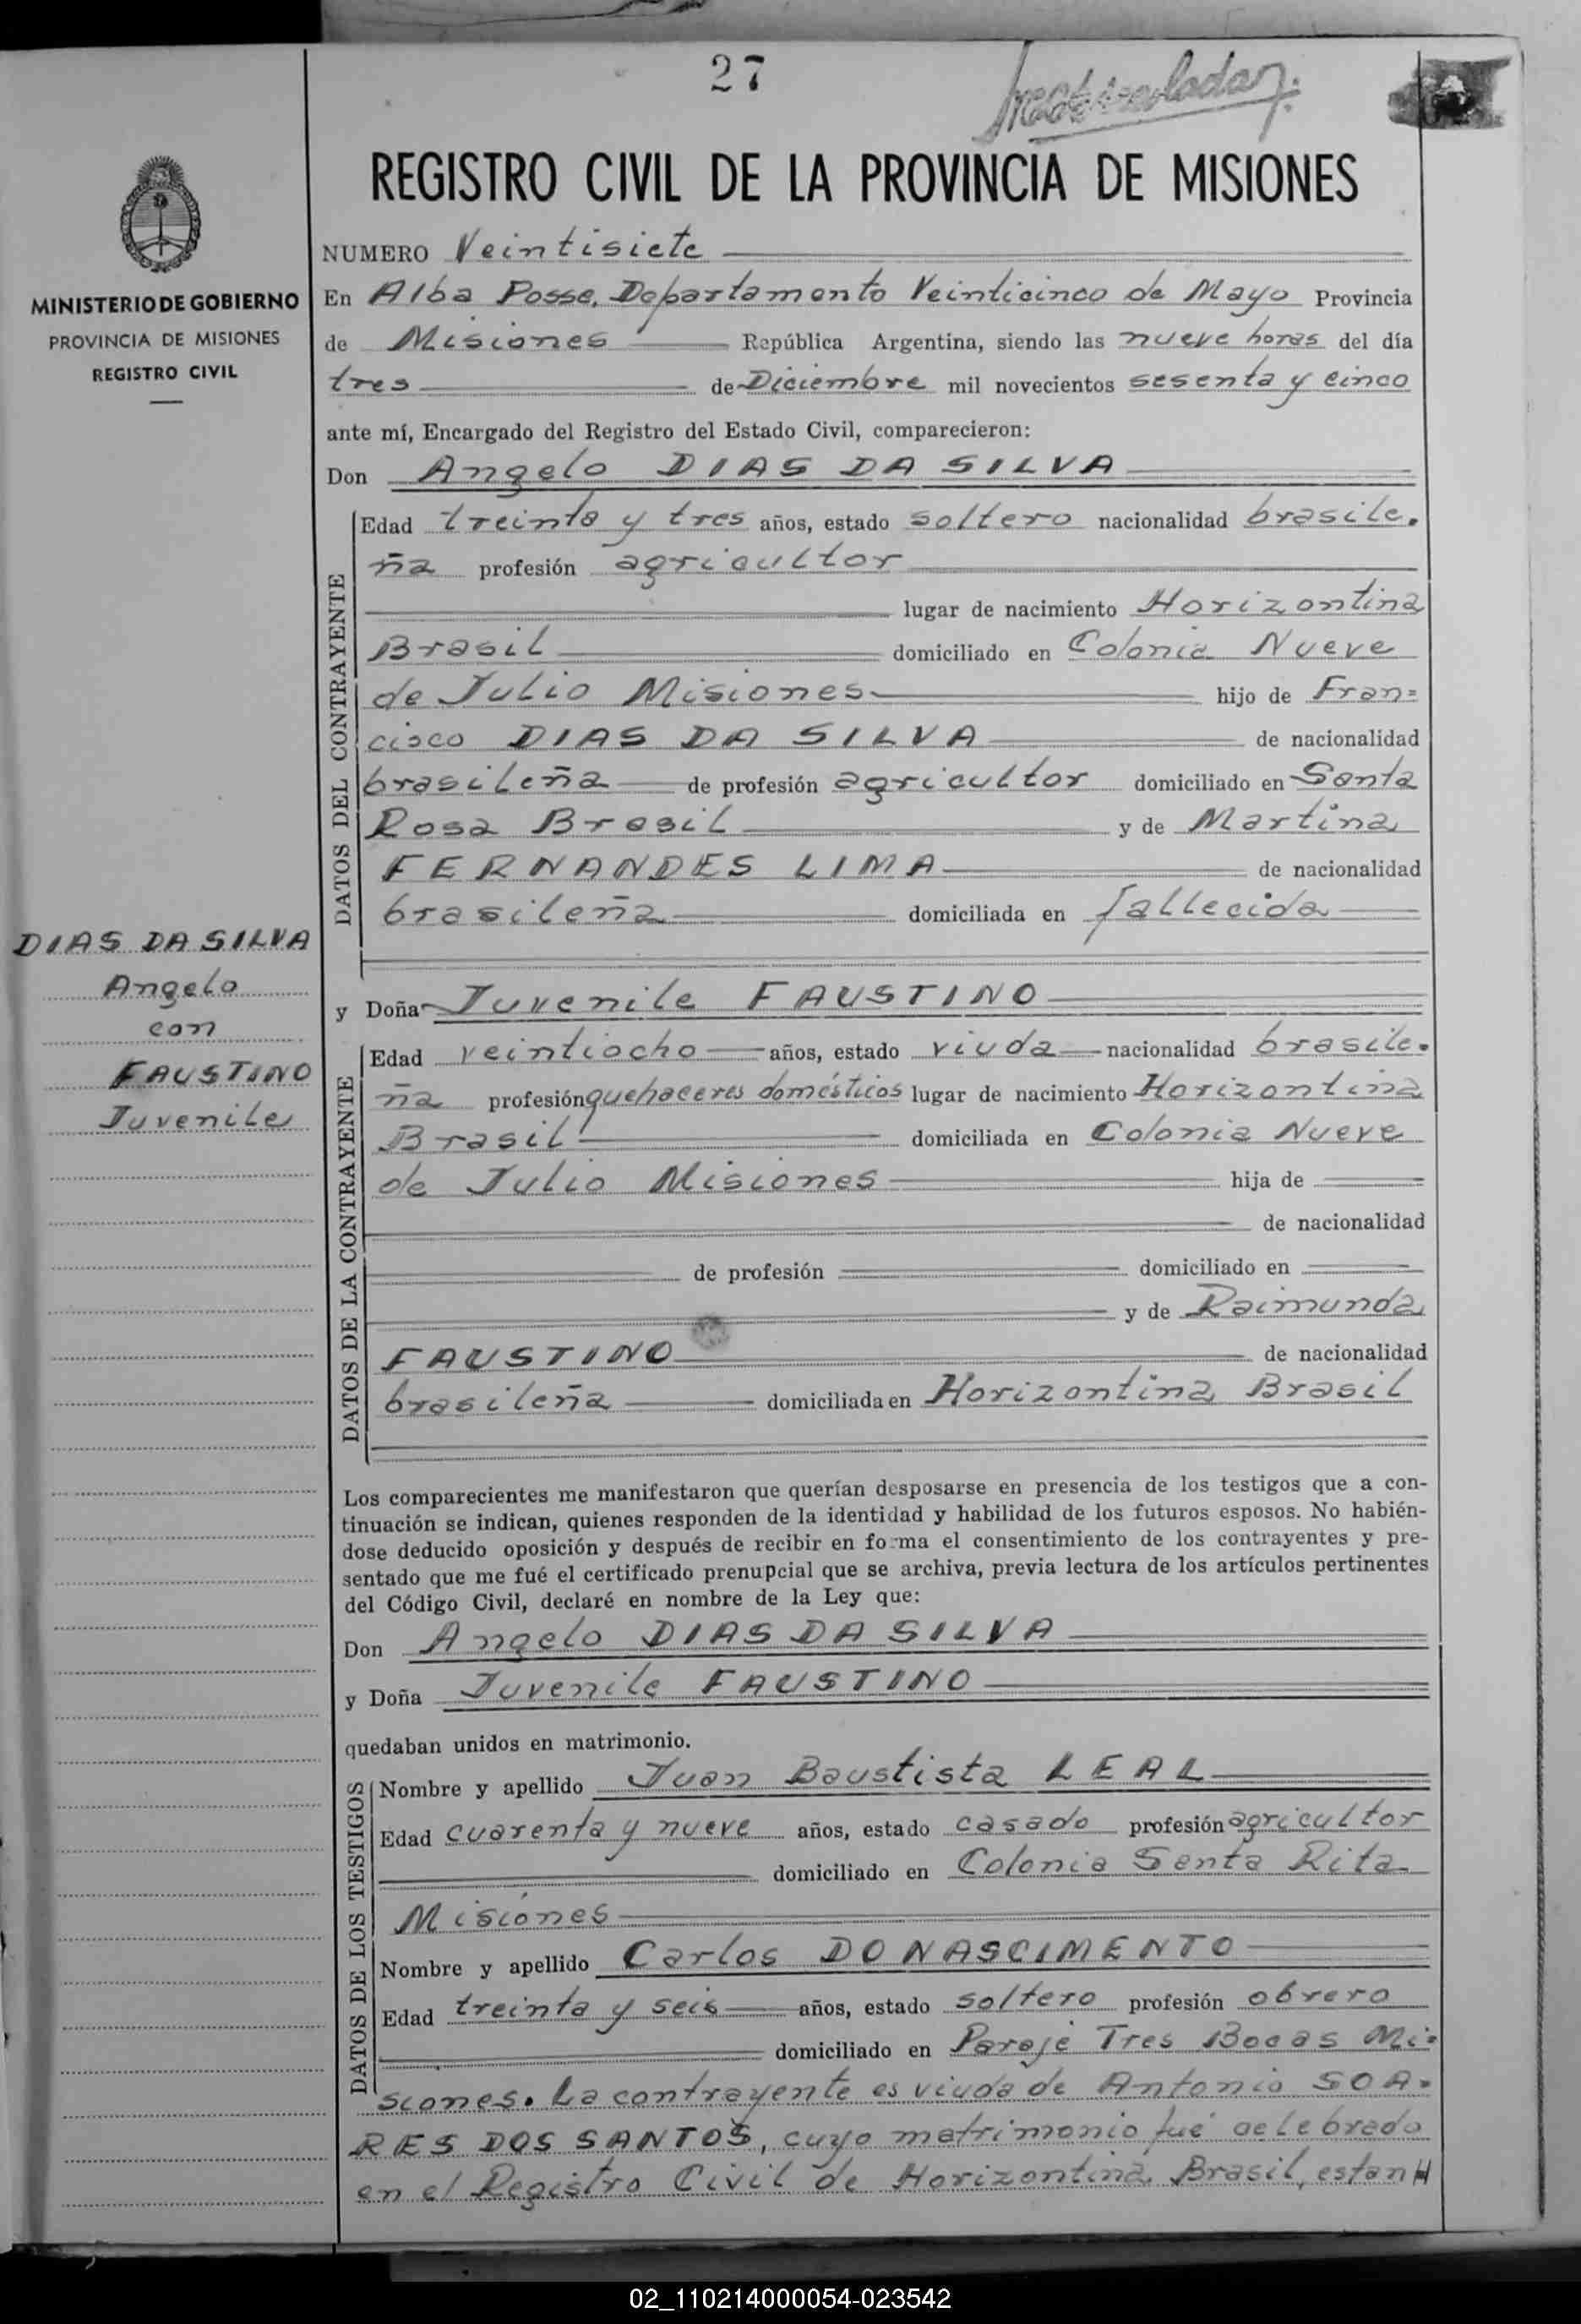 27
REGISTRO CIVIL DE LA PROVINCIA DE MISIONES
MINISTERIO DE GOBIERNO
PROVINCIA DE MISIONES
REGISTRO CIVIL
NUMERO Veintisiete
En Alba Posse, Departamento Veinticinco de Mayo Provincia
de Misiones República Argentina, siendo las nueve horas del día
tres de Diciembre mil novecientos sesenta y cinco
ante mí, Encargado del Registro del Estado Civil, comparecieron:
Don Angelo DIAS DA SILVA
DATOS DEL CONTRAYENTE
Edad treinta y tres años, estado soltero nacionalidad brasile-
ña profesión agricultor
lugar de nacimiento Horizontina
Brasil domiciliado en Colonia Nueve
de Julio Misiones hijo de Fran=
cisco DIAS DA SILVA de nacionalidad
brasileña de profesión agricultor domiciliado en Santa
Rosa Brasil y de Martina
FERNANDES LIMA de nacionalidad
brasileña domiciliada en fallecida
DIAS DA SILVA
Angelo
con
FAUSTINO
Juvenile
y Doña Juvenile FAUSTINO
DATOS DE LA CONTRAYENTE
Edad veintiocho años, estado viuda nacionalidad brasile-
ña profesión quehaceres domésticos lugar de nacimiento Horizontina
Brasil domiciliada en Colonia Nueve
de Julio Misiones hija de
de nacionalidad
de profesión domiciliado en
y de Raimunda
FAUSTINO de nacionalidad
brasileña domiciliada en Horizontina Brasil
Los comparecientes me manifestaron que querían desposarse en presencia de los testigos que a con-
tinuación se indican, quienes responden de la identidad y habilidad de los futuros esposos. No habién-
dose deducido oposición y después de recibir en forma el consentimiento de los contrayentes y pre-
sentado que me fué el certificado prenupcial que se archiva, previa lectura de los artículos pertinentes
del Código Civil, declaré en nombre de la Ley que:
Don Angelo DIAS DA SILVA
y Doña Juvenile FAUSTINO
quedaban unidos en matrimonio.
DATOS DE LOS TESTIGOS
Nombre y apellido Juan Baustista LEAL
Edad cuarenta y nueve años, estado casado profesión agricultor
domiciliado en Colonia Santa Rita
Misiones
Nombre y apellido Carlos DO NASCIMENTO
Edad treinta y seis años, estado soltero profesión obrero
domiciliado en Paraje Tres Bocas Mi=
siones. La contrayente es viuda de Antonio SOA-
RES DOS SANTOS, cuyo matrimonio fué celebrado
en el Registro Civil de Horizontina Brasil, estan
02_110214000054-023542